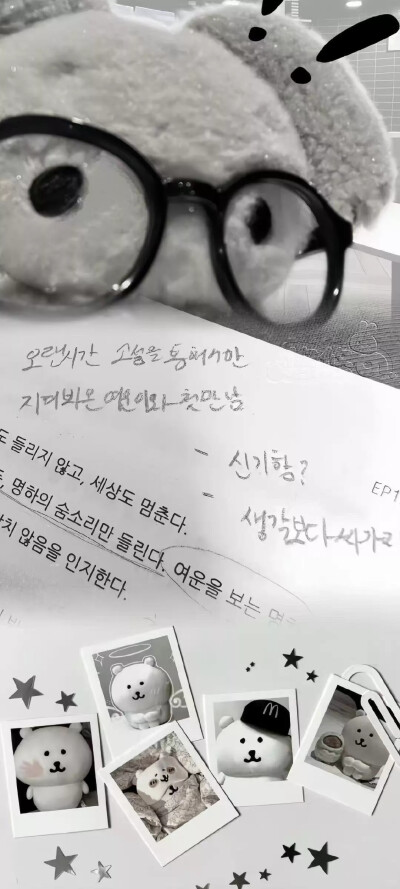 오랜시간 소설을 통해서만
지켜봐온 여운이와 첫만남
- 신기함?
EP1
- 생각보다
도 들리지 않고, 세상도 멈춘다.
명하의 숨소리만 들린다. 여운을 보는
않음을 인지한다.